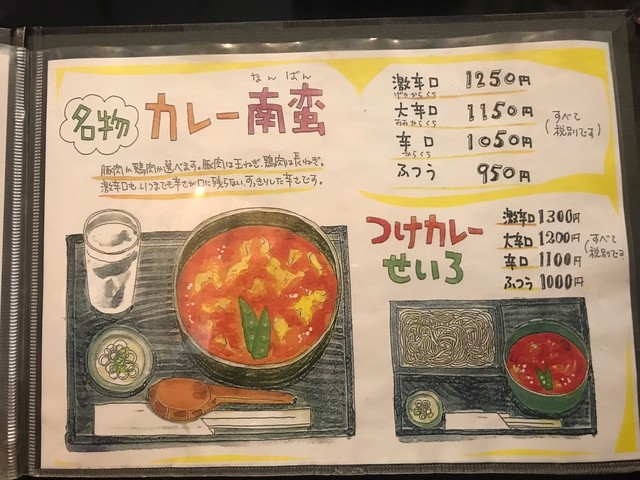 なんばん
名物 カレー南蛮
豚肉か鴨肉か選べます。豚肉は玉ねぎ、鴨肉は長ねぎ。
激辛口も、いつまでも辛さが口に残らない、すっきりした辛さです。
激辛口 1250円
げきからくち
大辛口 1150円
おおからくち
辛口 1050円
からくち
ふつう 950円
(すべて税別です)
つけカレーせいろ
激辛口 1300円
大辛口 1200円
辛口 1100円
ふつう 1000円
(すべて税別です